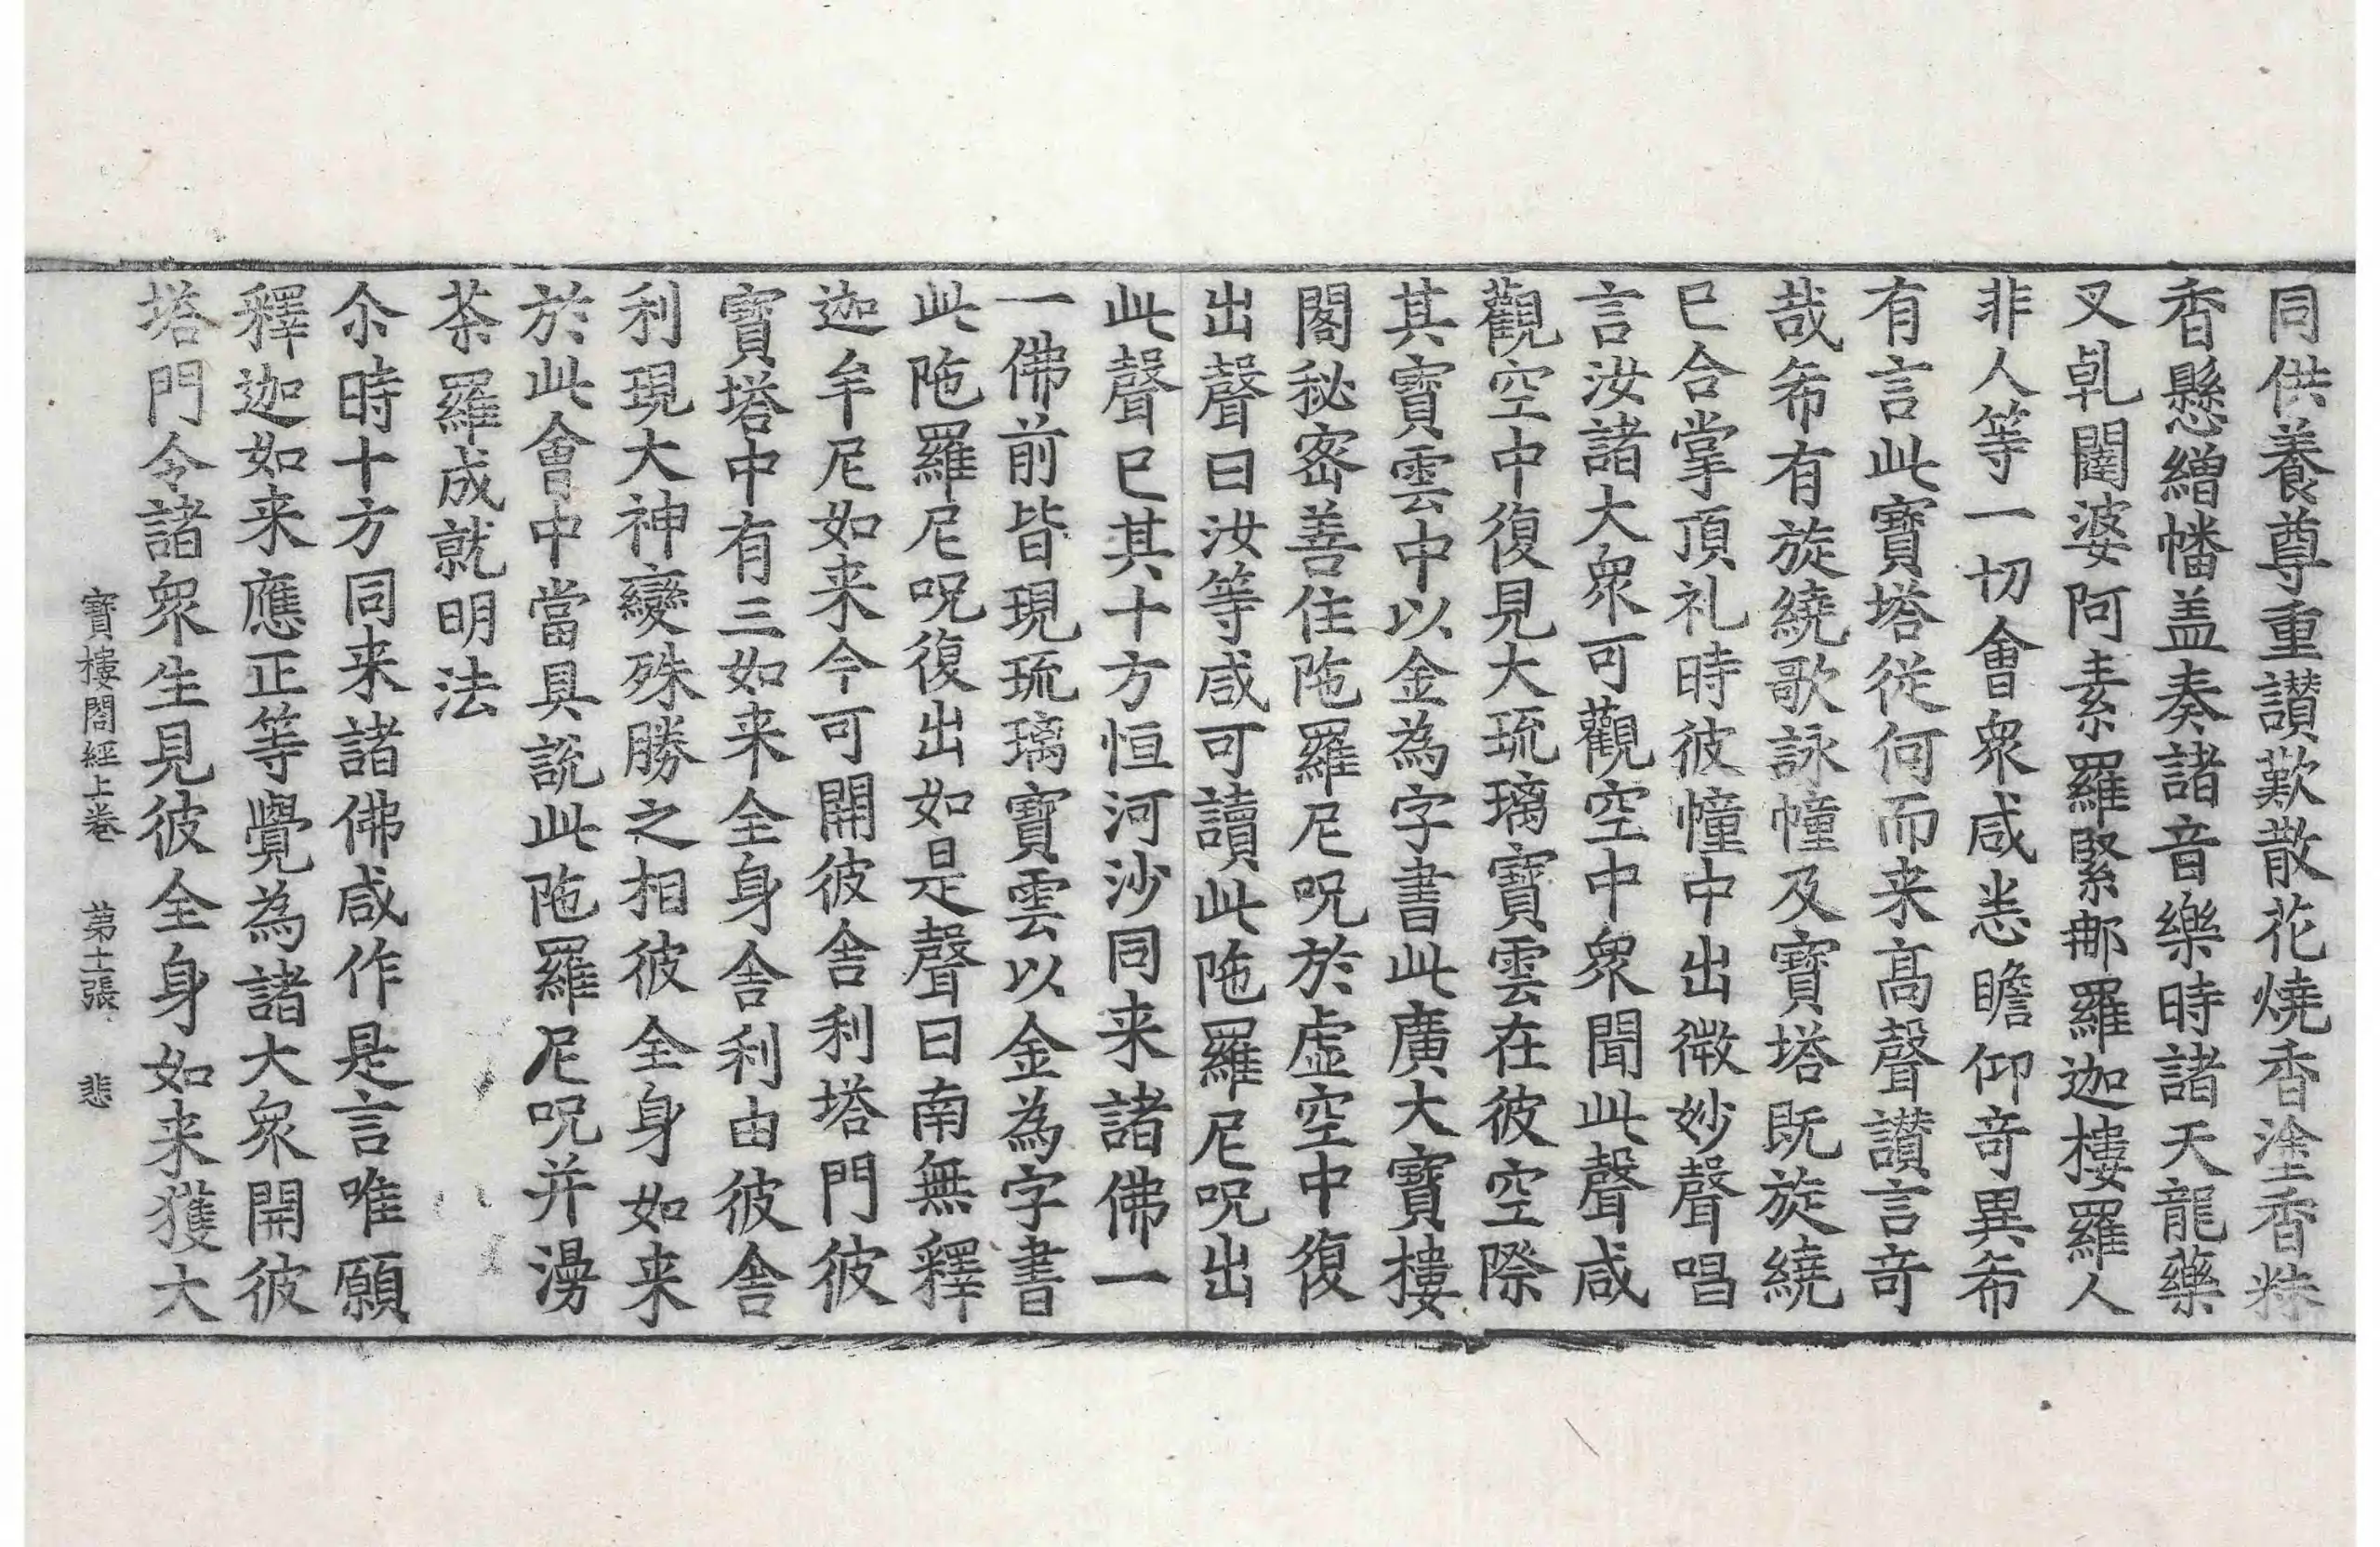 同供養尊重讃歎散花燒香塗香粖
香懸繒幡盖奏諸音樂時諸天龍藥
叉乹闥婆阿素羅緊那羅迦樓羅人
非人等一切會眾咸悉瞻仰奇異希
有言此寶塔從何而来髙聲讃言奇
哉希有旋繞歌詠幢及寶塔既旋繞
已合掌頂礼時彼幢中出微妙聲唱
言汝諸大眾可觀空中眾聞此聲咸
觀空中復見大琉璃寶雲在彼空際
其寶雲中以金為字書此廣大寶樓
閣秘密善住陁羅尼呪於虛空中復
出聲曰汝等咸可讀此陁羅尼呪出
此聲已其十方恒河沙同来諸佛一
一佛前皆現琉璃寶雲以金為字書
此陁羅尼呪復出如是聲曰南無釋
迦牟尼如来今可開彼舍利塔門彼
寶塔中有三如来全身舍利由彼舍
利現大神變殊勝之相彼全身如来
於此會中當具說此陁羅尼呪并漫
茶羅成就明法
尒時十方同来諸佛咸作是言唯願
釋迦如来應正等覺為諸大眾開彼
塔門令諸眾生見彼全身如来獲大
寶樓閣經上卷 第十二張 悲